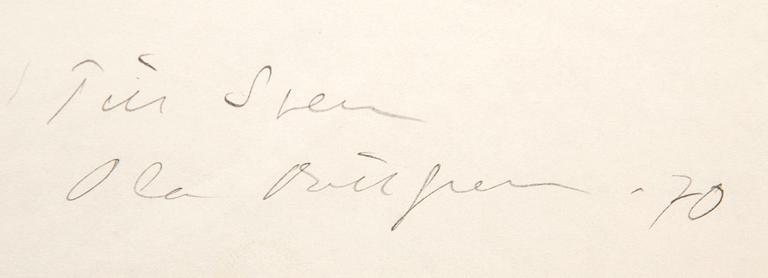 Till Sven
Ola Billgren -70